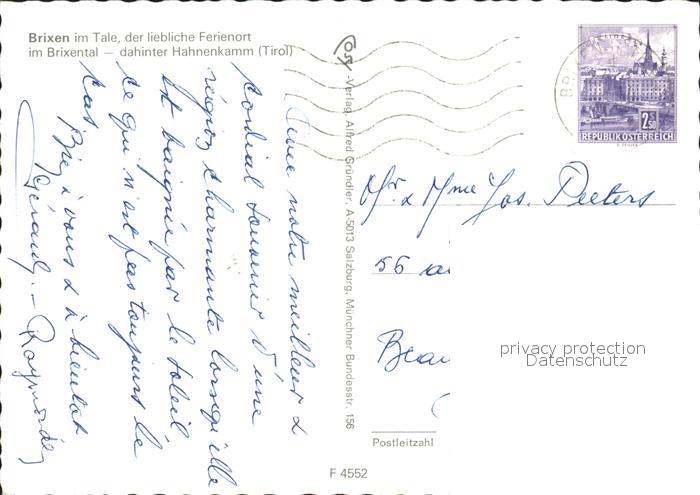 Brixen im Tale, der liebliche Ferienort
im Brixental — dahinter Hahnenkamm (Tirol)
Avec notre meilleur &
cordial souvenir d'une
région charmante lorsqu'elle
est baignée par le soleil,
ce qui n'est pas toujours le
cas
Bien à vous & à bientôt
-Verlag Alfred Gründler, A-5013 Salzburg, Münchner Bundesstr. 156
2.50
REPUBLIK ÖSTERREICH
Mr & Mme Jos. Peeters
56
privacy protection
Datenschutz
Postleitzahl
F 4552